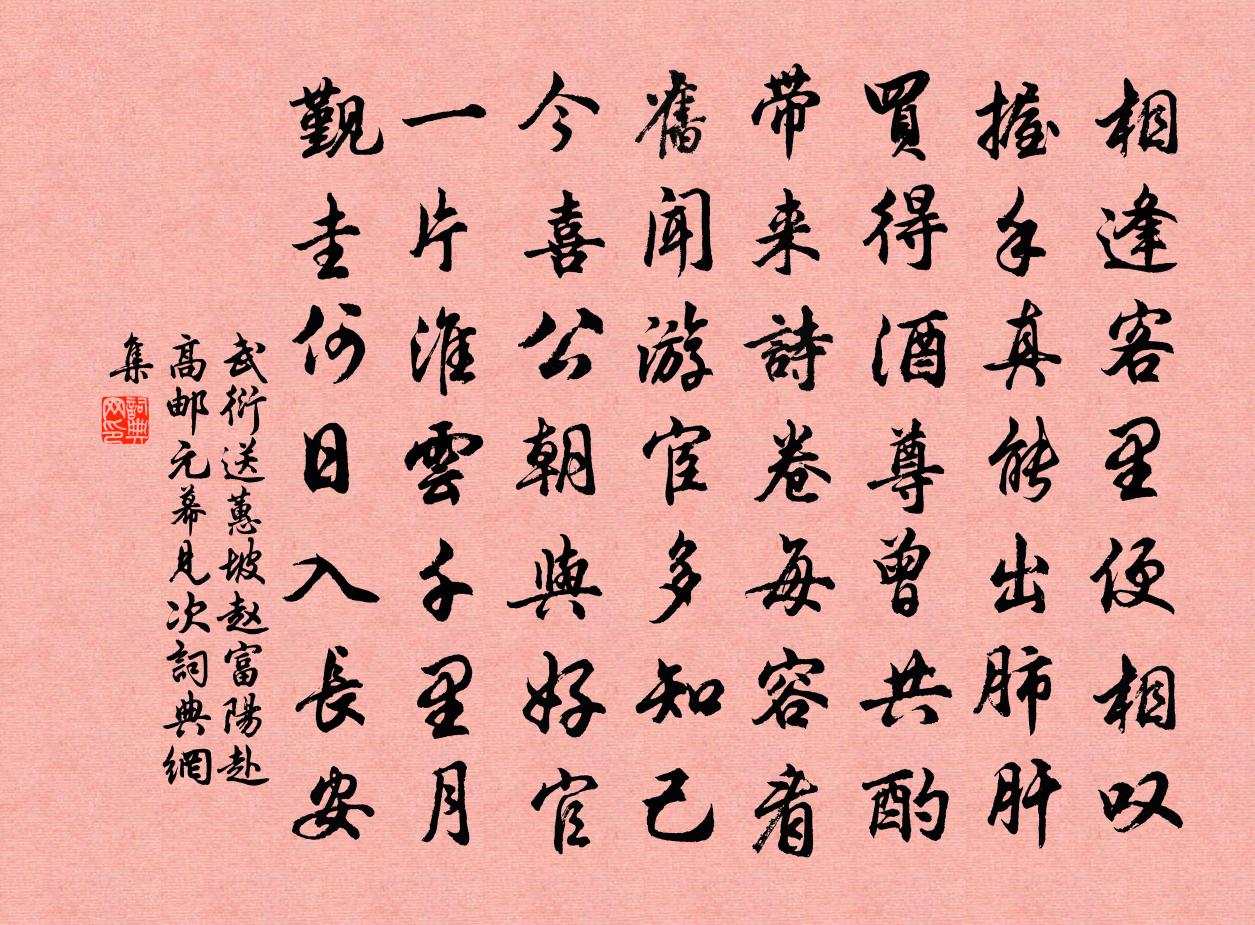 相逢客里便相叹
握手真能出肺肝
買得酒尊曾共酌
带来詩卷每容看
舊聞游宦多知己
今喜公朝與好官
一片淮雲千里月
觐圭何日入長安
武衍送蕙坡赵富陽赴
高邮元幕見次詞典網
集
詞典网印